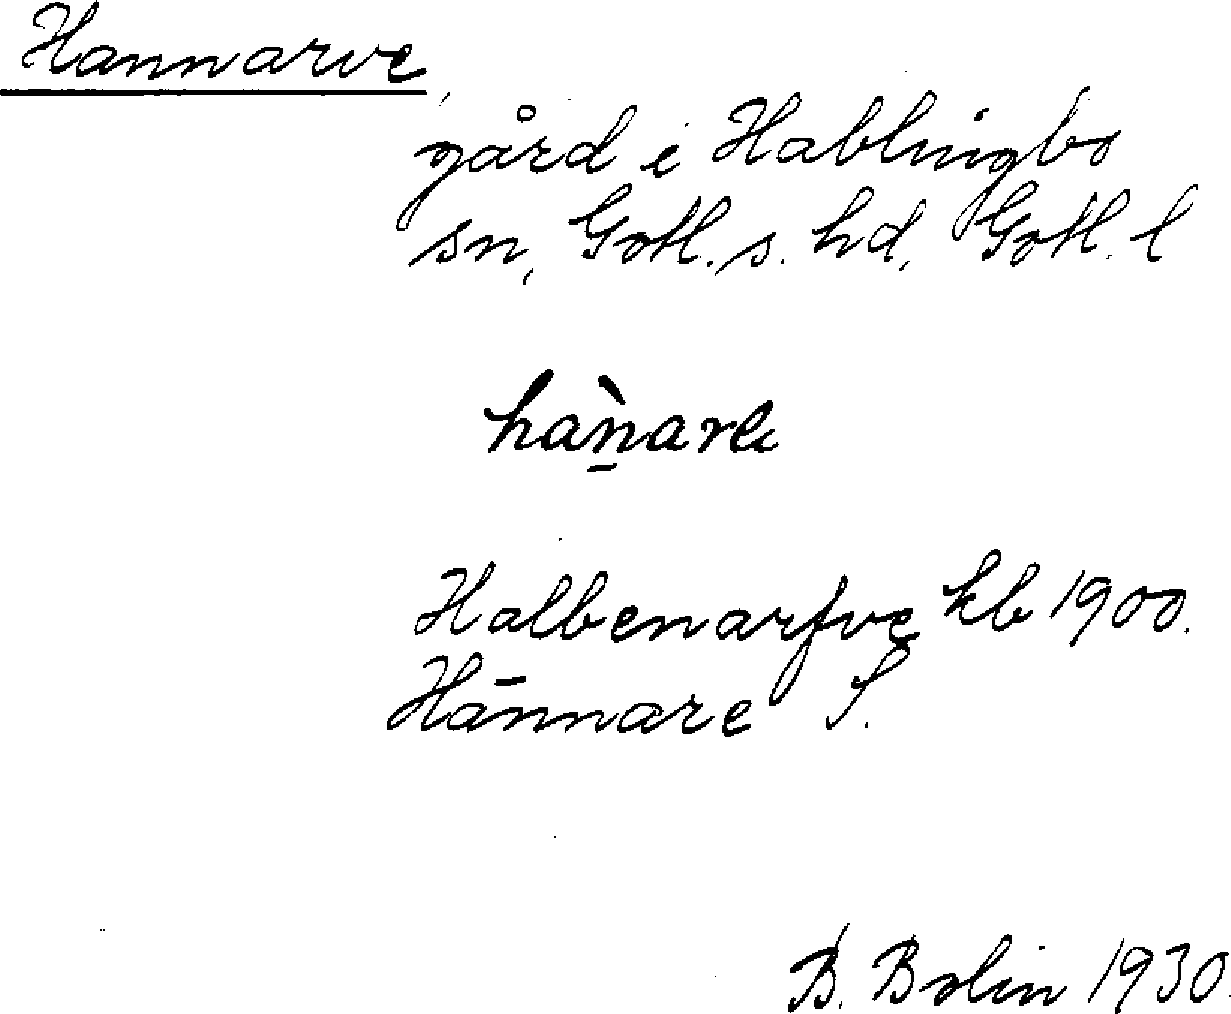 Hannarve,
gård i Hablingbo
sn, Gotl. s. hd, Gotl. l
Halbenarfve kb 1900.
Hānnare S.
B. Bolin 1930.